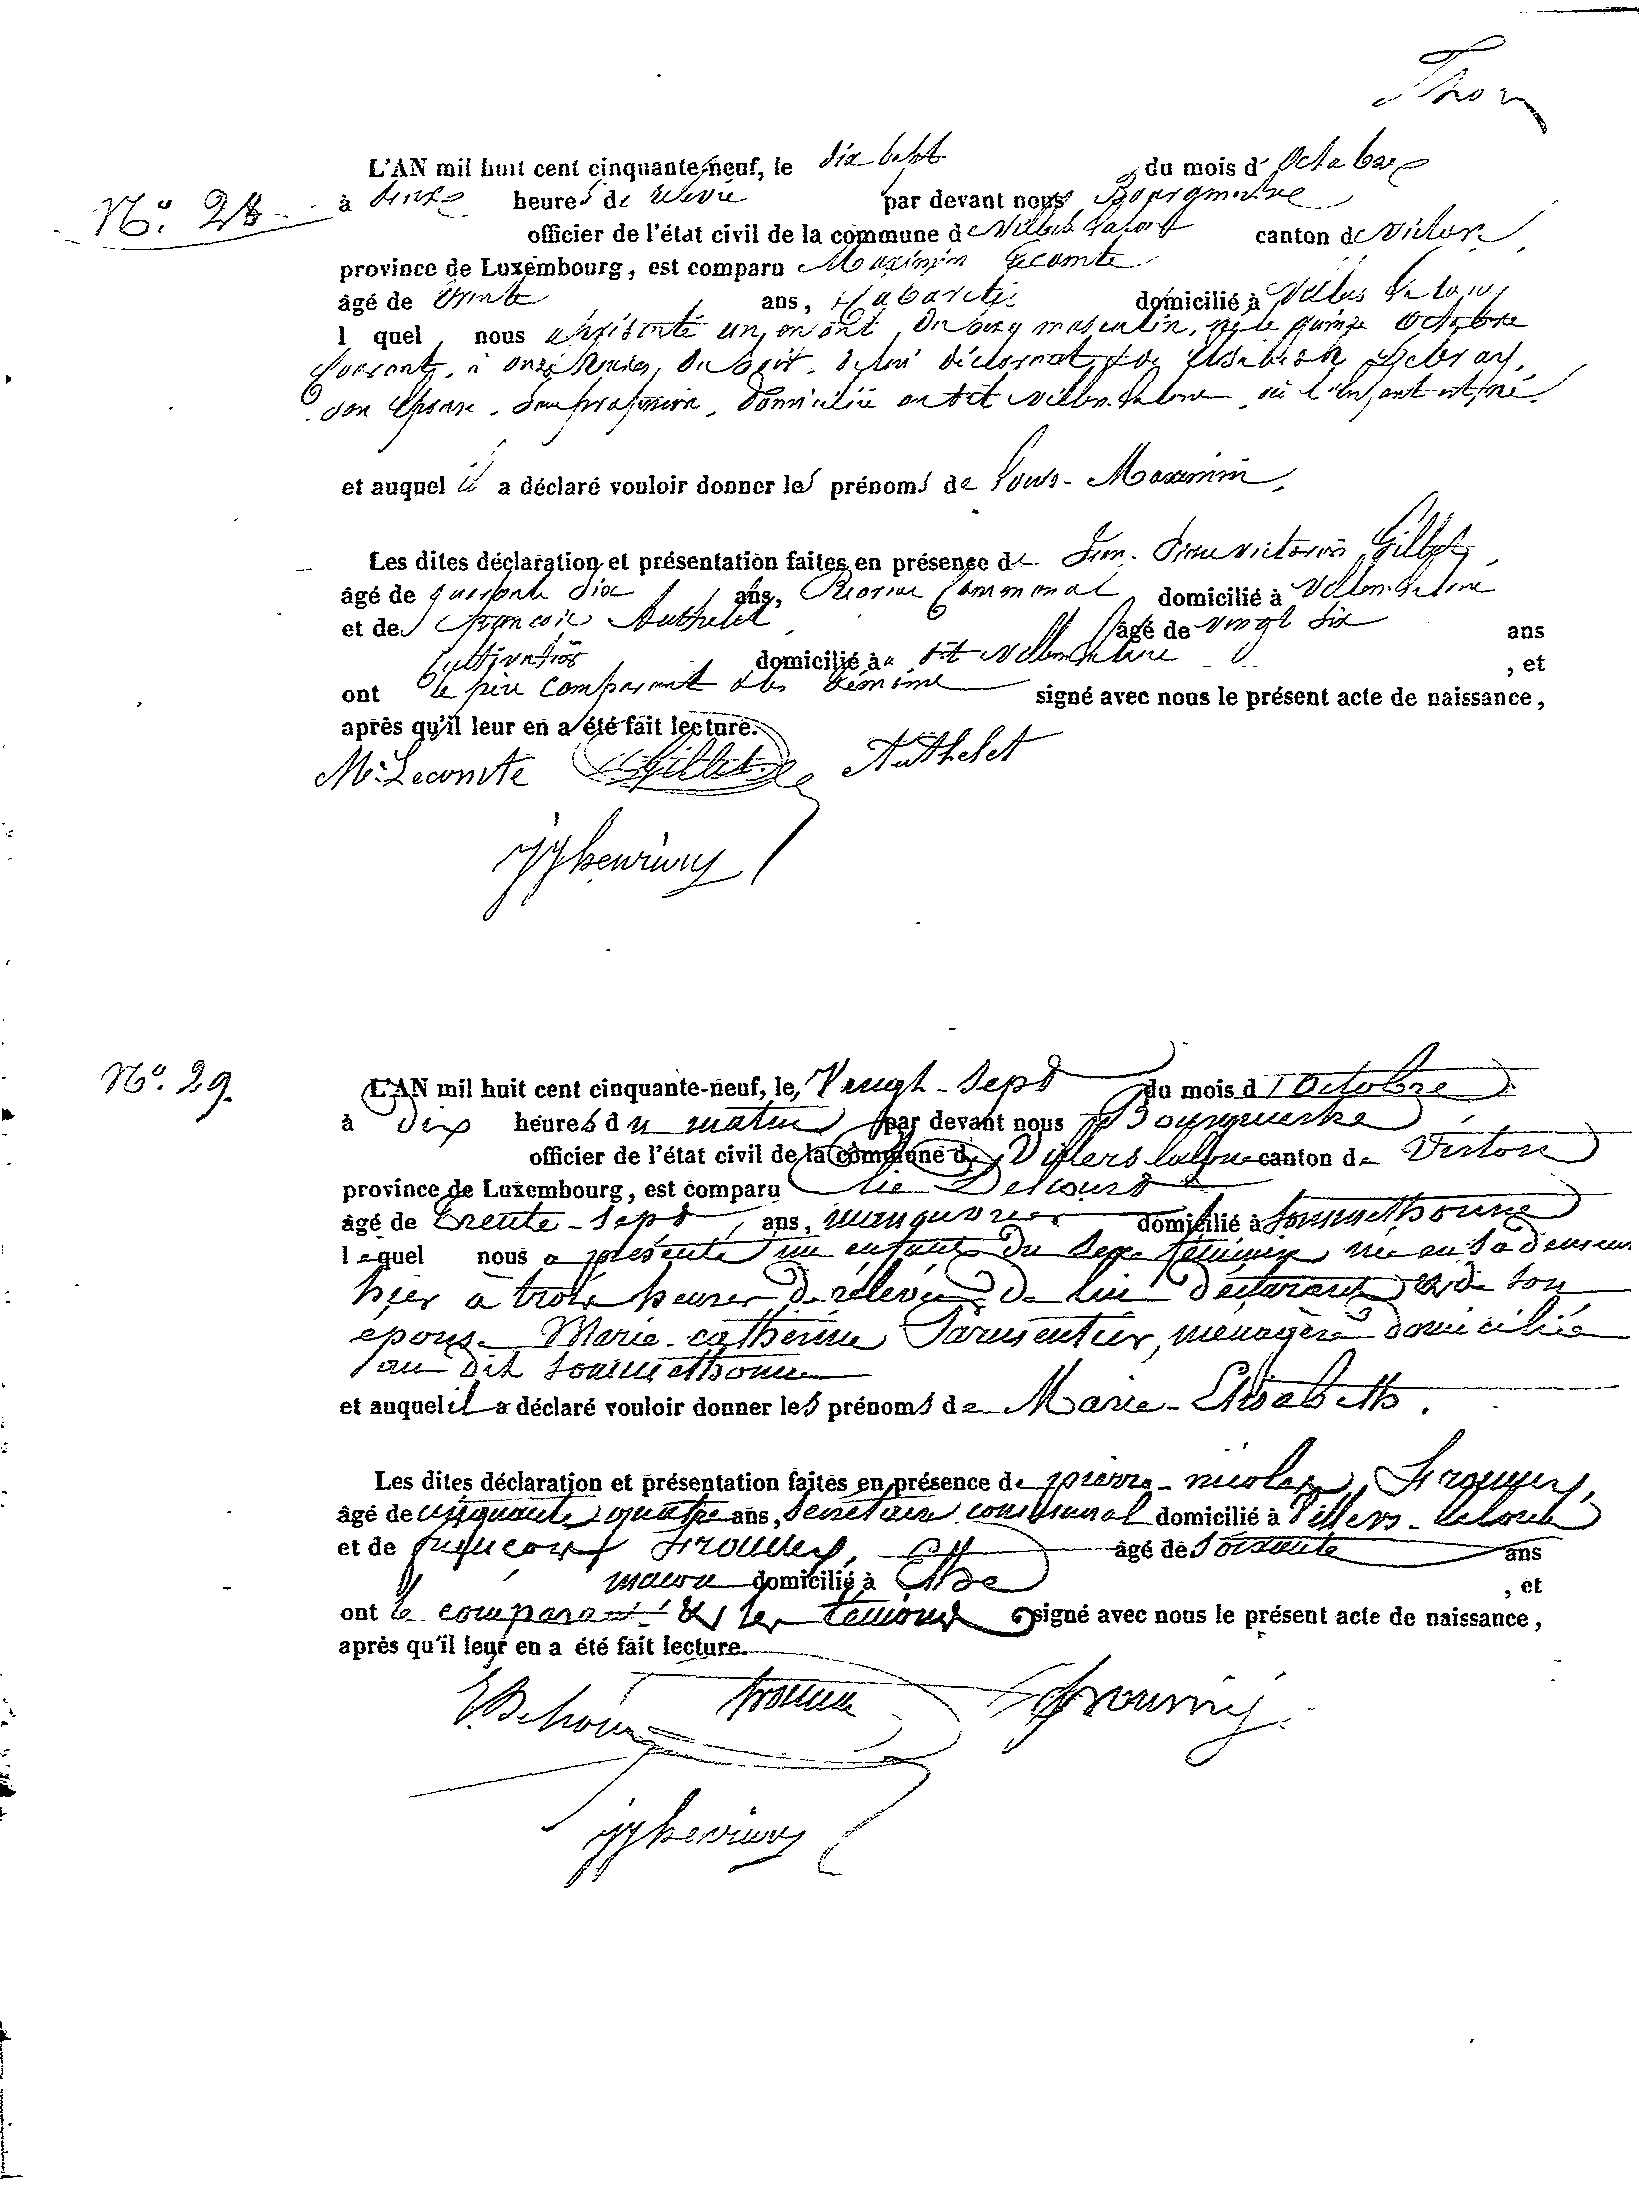 Thon
L'AN mil huit cent cinquante-neuf, le dix sept du mois d' Octobre
N.° 28
à heures de relevée par devant nous Bourgmestre
officier de l'état civil de la commune de Villers Laloue canton de Virton
province de Luxembourg, est comparu Maximin Lecomte
âgé de trente ans, Cabaretier domicilié à Villers La Loue
l quel nous a présenté un enfant du sexe masculin, né le quinze Octobre
courant, à onze heures du soir, de lui déclarant et de Elisabeth
son épouse, sans profession, domiciliée au dit Villers Laloue où l'enfant est né.
et auquel il a déclaré vouloir donner les prénoms de Louis-Maximin.
Les dites déclaration et présentation faites en présence de Jean Gillet,
âgé de quarante dix ans, Communal domicilié à Villers Laloue
et de François Authelet âgé de vingt six ans
Cultivateur domicilié à dit Villers Laloue , et
ont le père comparant et les témoins signé avec nous le présent acte de naissance,
après qu'il leur en a été fait lecture.
M. Lecomte Gillet Authelet
N.° 29.
L'AN mil huit cent cinquante-neuf, le Vingt-sept du mois d'Octobre
à dix heures du matin par devant nous Bourgmestre
officier de l'état civil de la commune de Villers laloue canton de Virton
province de Luxembourg, est comparu
âgé de trente-sept ans, manouvrier domicilié à Sommethonne
lequel nous a présenté un enfant du sexe féminin né en sa demeure
hier à trois heures de relevée de lui déclarant et de son
épouse Marie-catherine Parmentier, ménagère domiciliée
au dit Sommethonne
et auquel il a déclaré vouloir donner les prénoms de Marie-Elisabeth.
Les dites déclaration et présentation faites en présence de pierre-nicolas
âgé de cinquante quatre ans, Secrétaire communal domicilié à Villers-laloue
et de âgé de soixante ans
maçon domicilié à Ethe , et
ont le comparant & les témoins signé avec nous le présent acte de naissance,
après qu'il leur en a été fait lecture.